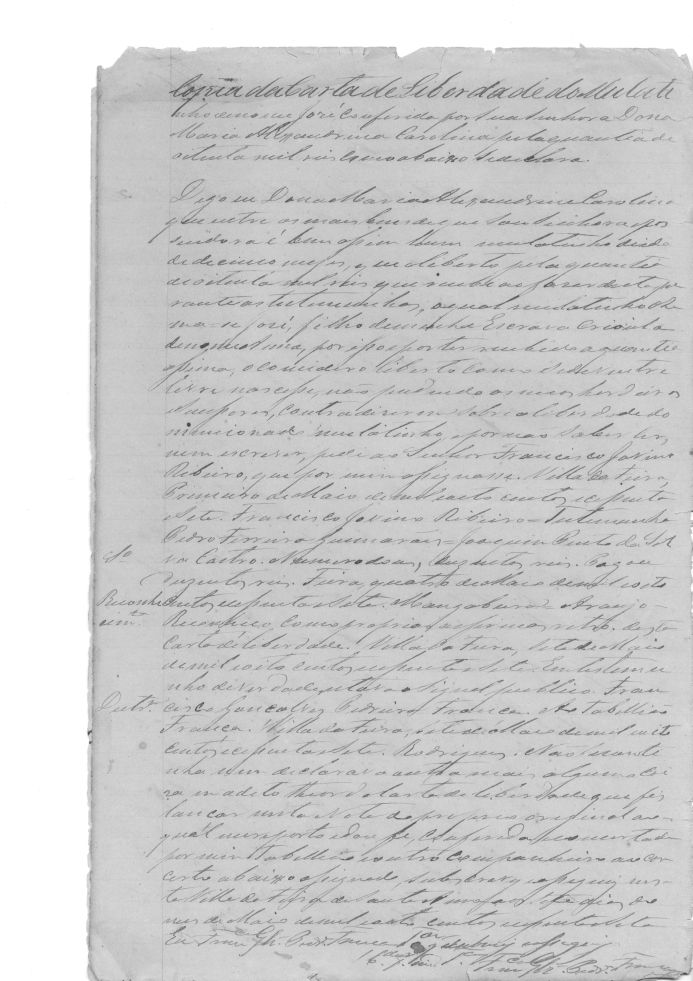 Copia da Carta de Liberdade do Mulati
nho de nome José conferida por sua Senhora Dona
Maria Alexandrina Carolina pela quantia de
oitenta mil reis como abaixo se declara.
Digo eu Dona Maria Alexandrina Carolina
que entre os mais bens de que sou Senhora e pos
suidora é bem assim hum mulatinho idade
de cinco meses, que liberto pela quantia
de oitenta mil reis que recebi ao fazer desta pe
rante as testemunhas, o qual mulatinho cha
ma-se José, filho de minha Escrava Crioula
de nome, por isso e por ter recebido a quantia
assima, o considero liberto como se de ventre
livre nascesse, não podendo os meos herdeiros
em tempo, contradizerem sobre a liberdade do
mencionado mulatinho, e por não saber ler,
nem escrever, pedi ao Senhor Francisco Jovino
Ribeiro, que por mim assignasse. Villa da Feira
Primeiro de Maio de mil oito centos e cincoenta
e Sete. Francisco Jovino Ribeiro = Testemunha
Pedro Ferreira Guimarães = Joaquim Pinto da Sil
va Castro. Numero, duzentos reis. Pagou
duzentos reis. Feira, quatro de Maio de mil oito
Reconhe centos e cincoenta e Sete. Mangabeira = Araujo =
cim.to Reconheço como propria a firma retro desta
Carta de liberdade. Villa da Feira, sete de Maio
de mil oito centos e cincoenta e Sete. Em testemu
nho de verdade, estava o Signal publico. Fran
Distr. cisco Gonçalves Pedreira França. Ao Tabellião
França. Villa da Feira, sete de Maio de mil oito
centos e cincoenta e Sete. Rodrigues. Não se conti
nha nem declarava outra mais alguma coi
za in a dito theor da Carta de liberdade que fis
lançar nesta Nota do proprio original ao
qual me reporto e dou fé, conferida e concertada
por mim Tabellião e outro companheiro ao con
certo abaixo assignado, subscrevy e assigney nes
ta Villa da Feira de Santa Anna, aos sete dias do
mez de Maio de mil oito centos e cincoenta e Sete
Eu Fran.co Glz. Pedr.a França